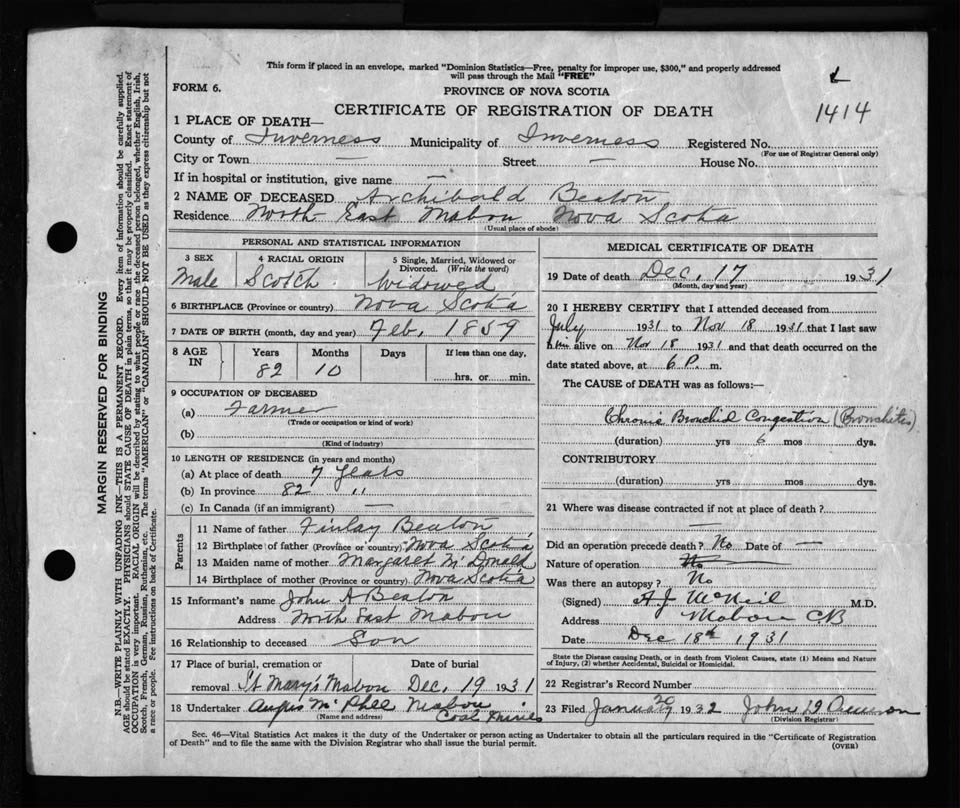 This form if placed in an envelope, marked "Dominion Statistics—Free, penalty for improper use, $300," and properly addressed
will pass through the Mail "FREE"
FORM 6.
PROVINCE OF NOVA SCOTIA
CERTIFICATE OF REGISTRATION OF DEATH
1414
1 PLACE OF DEATH—
County of Inverness Municipality of Inverness Registered No.
(For use of Registrar General only)
City or Town — Street — House No.
If in hospital or institution, give name —
2 NAME OF DECEASED Archibald Beaton
Residence North East Mabou Nova Scotia
(Usual place of abode)
PERSONAL AND STATISTICAL INFORMATION
3 SEX 4 RACIAL ORIGIN 5 Single, Married, Widowed or
Divorced. (Write the word)
Male Scotch Widowed
6 BIRTHPLACE (Province or country) Nova Scotia
7 DATE OF BIRTH (month, day and year) Feb, 1859
8 AGE IN Years Months Days If less than one day,
82 10 hrs. or min.
9 OCCUPATION OF DECEASED
(a) Farmer
(Trade or occupation or kind of work)
(b)
(Kind of industry)
10 LENGTH OF RESIDENCE (in years and months)
(a) At place of death 7 Years
(b) In province 82 ,,
(c) In Canada (if an immigrant) —
Parents
11 Name of father Finlay Beaton
12 Birthplace of father (Province or country) Nova Scotia
13 Maiden name of mother Margaret McDonald
14 Birthplace of mother (Province or country) Nova Scotia
15 Informant's name John A Beaton
Address North East Mabou
16 Relationship to deceased Son
17 Place of burial, cremation or Date of burial
removal St Mary's Mabou Dec, 19 1931
18 Undertaker Angus McPhee Mabou
(Name and address) Coal Mines
MEDICAL CERTIFICATE OF DEATH
19 Date of death Dec, 17 1931
(Month, day and year)
20 I HEREBY CERTIFY that I attended deceased from
July 1931 to Nov 18 1931 that I last saw
him alive on Nov 18 1931 and that death occurred on the
date stated above, at 6 P. m.
The CAUSE of DEATH was as follows:—
Chronic Bronchial Congestion (Bronchitis)
(duration) yrs 6 mos dys.
CONTRIBUTORY
(duration) yrs. mos. dys.
21 Where was disease contracted if not at place of death?
—
Did an operation precede death? No Date of —
Nature of operation No
Was there an autopsy? No
(Signed) A J McNeil M.D.
Address Mabou CB
Date Dec 18th 1931
State the Disease causing Death, or in death from Violent Causes, state (1) Means and Nature
of Injury, (2) whether Accidental, Suicidal or Homicidal.
22 Registrar's Record Number
23 Filed January 1932 John D
(Division Registrar)
Sec. 46—Vital Statistics Act makes it the duty of the Undertaker or person acting as Undertaker to obtain all the particulars required in the "Certificate of Registration
of Death" and to file the same with the Division Registrar who shall issue the burial permit. (OVER)
MARGIN RESERVED FOR BINDING
N.B.—WRITE PLAINLY WITH UNFADING INK—THIS IS A PERMANENT RECORD. Every item of information should be carefully supplied.
AGE should be stated EXACTLY. PHYSICIANS should STATE CAUSE OF DEATH in plain terms, so that it may be properly classified. Exact statement of
OCCUPATION is very important. RACIAL ORIGIN will be described by stating to what people or race the deceased person belonged, whether English, Irish,
Scotch, French, German, Russian, Ruthenian, etc. The terms "AMERICAN" or "CANADIAN" SHOULD NOT BE USED as they express citizenship but not
a race or people. See instructions on back of Certificate.